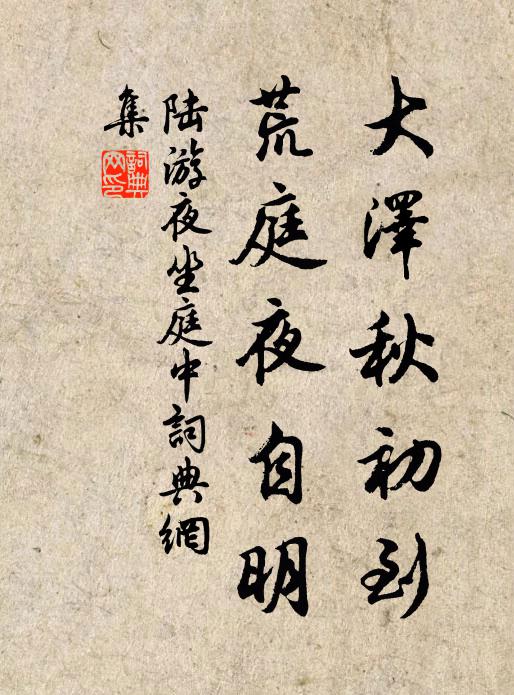 大澤秋初到
荒庭夜自明
陆游夜坐庭中詞典網
集
詞典
网印